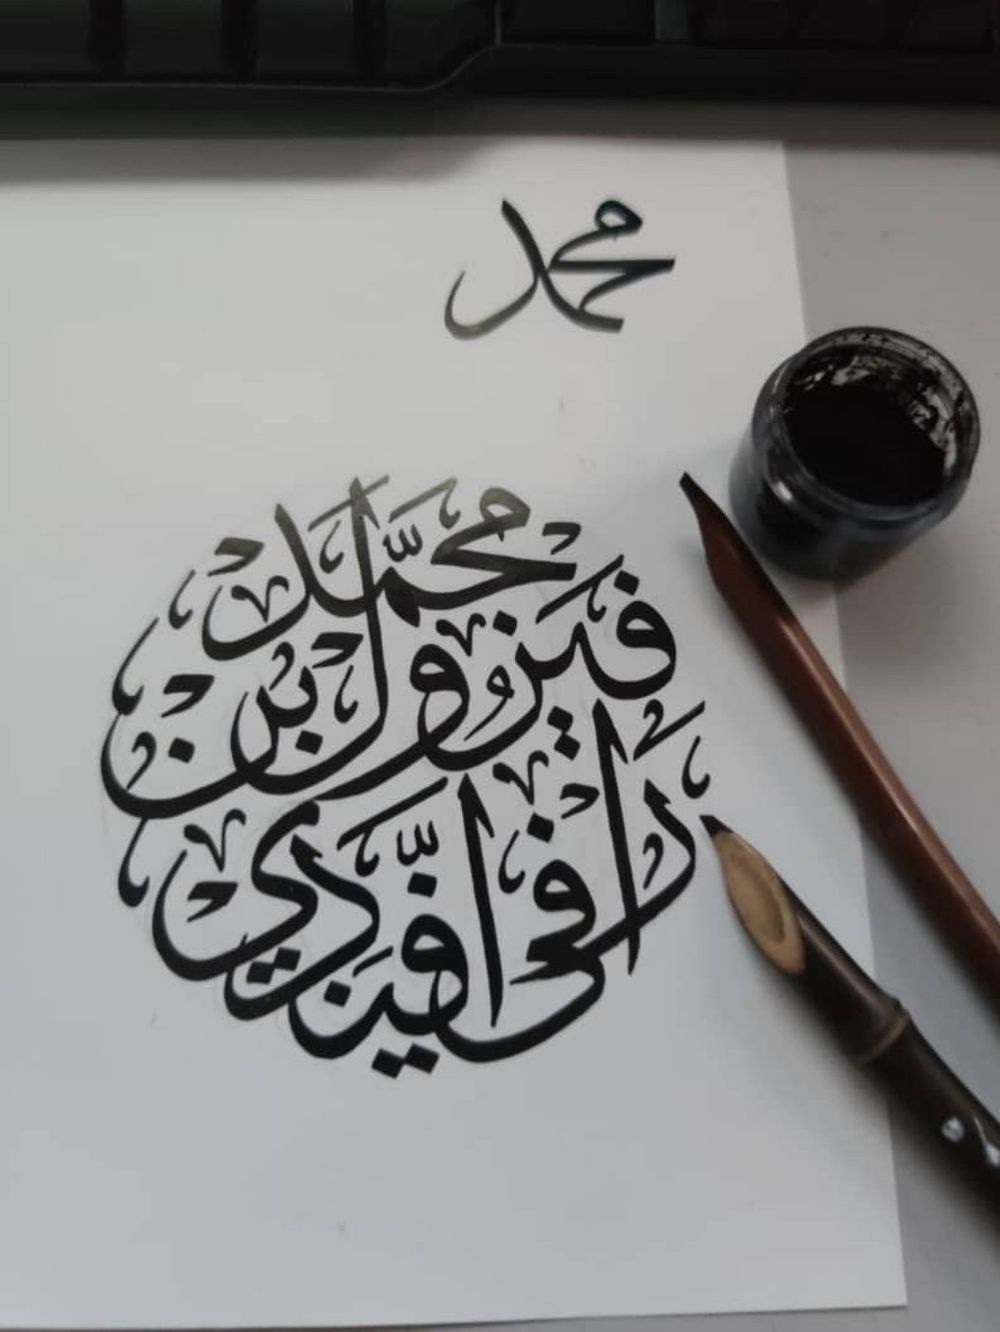 محمد
محمّد
فيزول بن
رافعى افيندي